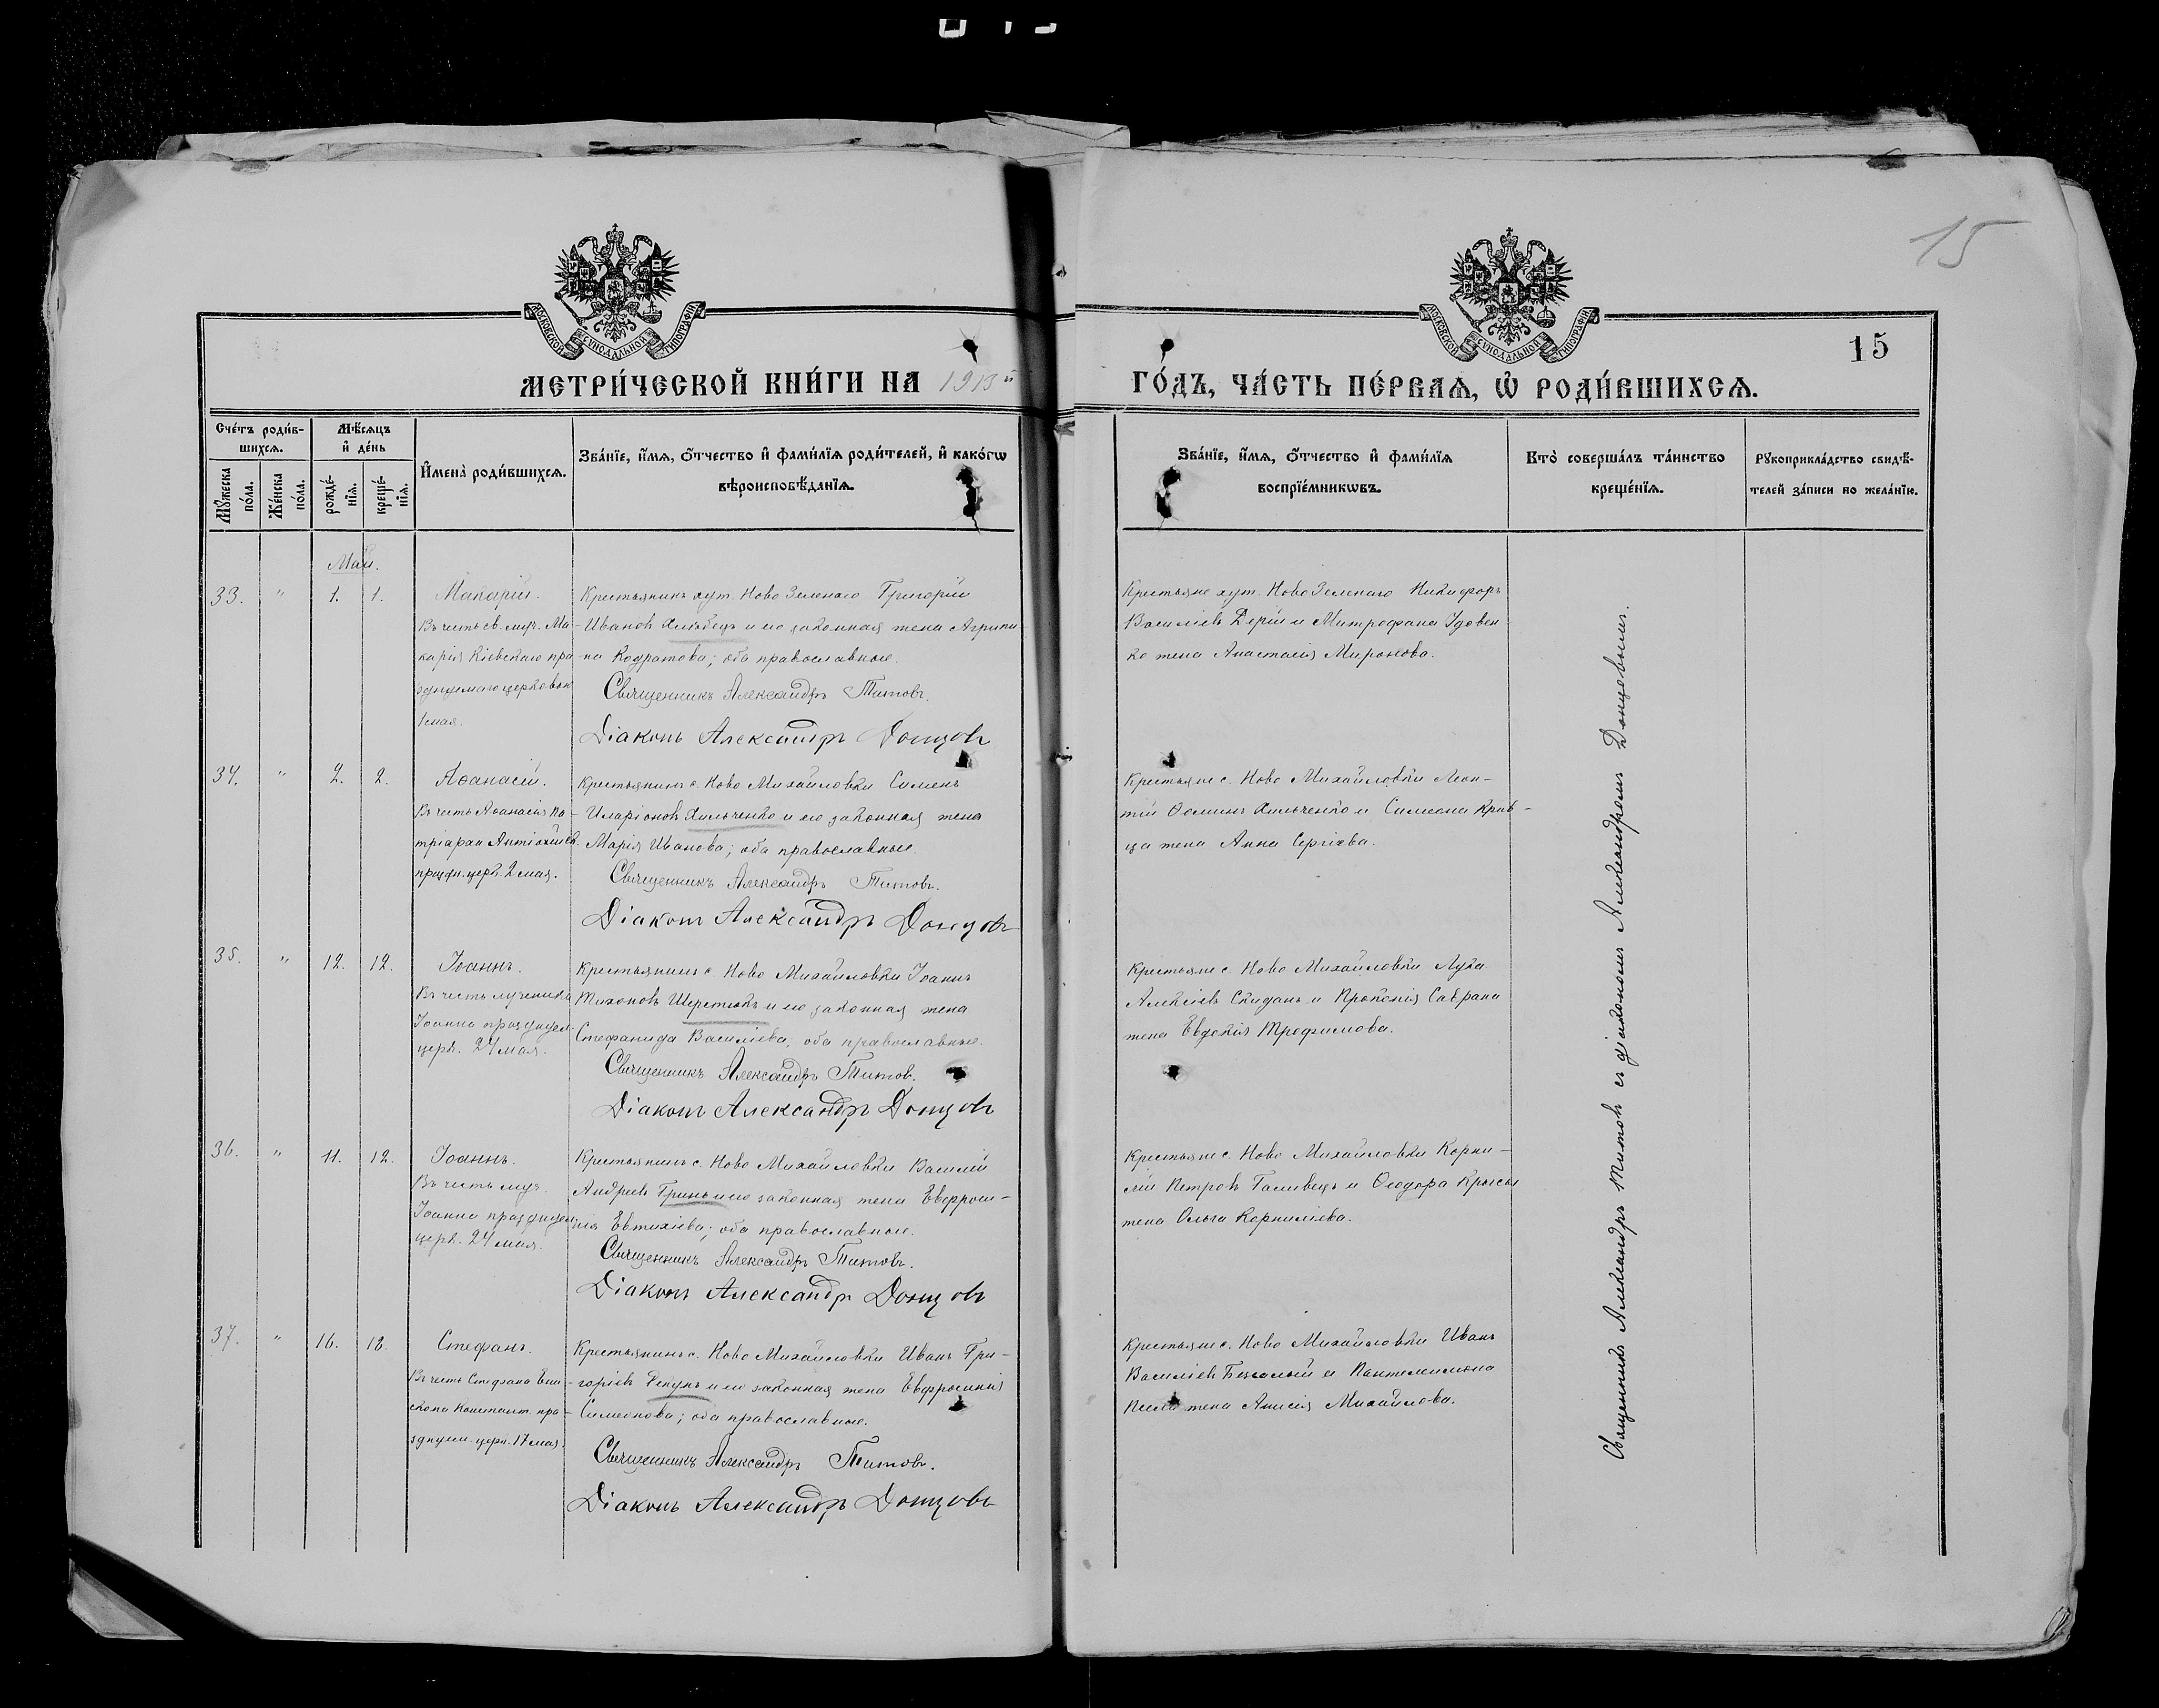 15
МОСКОВСКОЙ СѴНОДАЛЬНОЙ ТИПОГРАФІИ
МОСКОВСКОЙ СѴНОДАЛЬНОЙ ТИПОГРАФІИ
15
МЕТРИ́ЧЕСКОЙ КНИ́ГИ НА 1913й
ГО́ДЪ, ЧА́СТЬ ПЕ́РВАѦ, Ѡ҆ РОДИ́ВШИХСѦ.
Сче́тъ роди́в-
шихсѧ.
Мꙋ́жеска по́ла.
Же́нска по́ла.
Мѣ́сѧцъ
и҆ де́нь
рожде́-
нїѧ.
креще́-
нїѧ.
И҆мена̀ роди́вшихсѧ.
Зва́нїе, и҆́мѧ, ѻ҆́тчество и҆ фами́лїѧ роди́телей, и҆ како́гѡ
вѣроисповѣ́данїѧ.
Зва́нїе, и҆́мѧ, ѻ҆́тчество и҆ фами́лїѧ
воспрїе́мникѡвъ.
Кто̀ соверша́лъ та́инство
креще́нїѧ.
Рꙋкоприкла́дство свидѣ́-
телей за́писи по жела́нїю.
Май.
33. " 1. 1. Макарій.
Въ честь св. мир. Ма-
карія Кіевскаго пра-
зднуемаго церковью
1 мая.
Крестьянинъ хут. Ново Зеленаго Григорій
Ивановъ Хлѣбецъ и его законная жена Агрипи-
на Кодратова; оба православные.
Священникъ Александръ Титовъ.
Діаконъ Александръ Донцовъ
Крестьяне хут. Ново Зеленаго Никифоръ
Василіевъ Дерій и Митрофана Удовен
ко жена Анастасія Миронова.
34. " 2. 2. Аѳанасій.
Въ честь Аѳанасія Па-
тріарха Антіохійск.
праздн. церк. 2 мая.
Крестьянинъ с. Ново Михайловки Симеонъ
Иларіоновъ Хильченко и его законная жена
Марія Иванова; оба православные.
Священникъ Александръ Титовъ.
Діаконъ Александръ Донцовъ
Крестьяне с. Ново Михайловки Леон-
тій Ѳоминъ Хильченко и Симеона Крав-
ца жена Анна Сергіева.
35. " 12. 12. Іоаннъ.
Въ честь мученика
Іоанна празднуем.
церк. 24 мая.
Крестьянинъ с. Ново Михайловки Іоаннъ
Тихоновъ Шереметъ и его законная жена
Стефанида Василіева, оба православные.
Священникъ Александръ Титовъ.
Діаконъ Александръ Донцовъ
Крестьяне с. Ново Михайловки Лука
Алексіевъ Скиданъ и Прокопія Саврана
жена Евдокія Трофимова.
36. " 11. 12. Іоаннъ.
Въ честь муч.
Іоанна празднуем.
церк. 24 мая.
Крестьянинъ с. Ново Михайловки Василій
Андреевъ Гринь и его законная жена Евфроси-
нія Евтихіева; оба православные.
Священникъ Александръ Титовъ.
Діаконъ Александръ Донцовъ
Крестьяне с. Ново Михайловки Корни-
лій Петровъ Галивецъ и Ѳеодора Крысы
жена Ольга Корниліева.
37. " 16. 18. Стефанъ.
Въ честь Стефана Епи-
скопа Констант. пра-
зднуем. церк. 17 мая.
Крестьянинъ с. Ново Михайловки Иванъ Гри-
горіевъ Репунъ и его законная жена Евфросинія
Симеонова; оба православные.
Священникъ Александръ Титовъ.
Діаконъ Александръ Донцовъ
Крестьяне с. Ново Михайловки Иванъ
Василіевъ Безгалый и Пантелимона
жена Анисія Михайлова.
Священникъ Александръ Титовъ съ діакономъ Александромъ Донцовымъ.